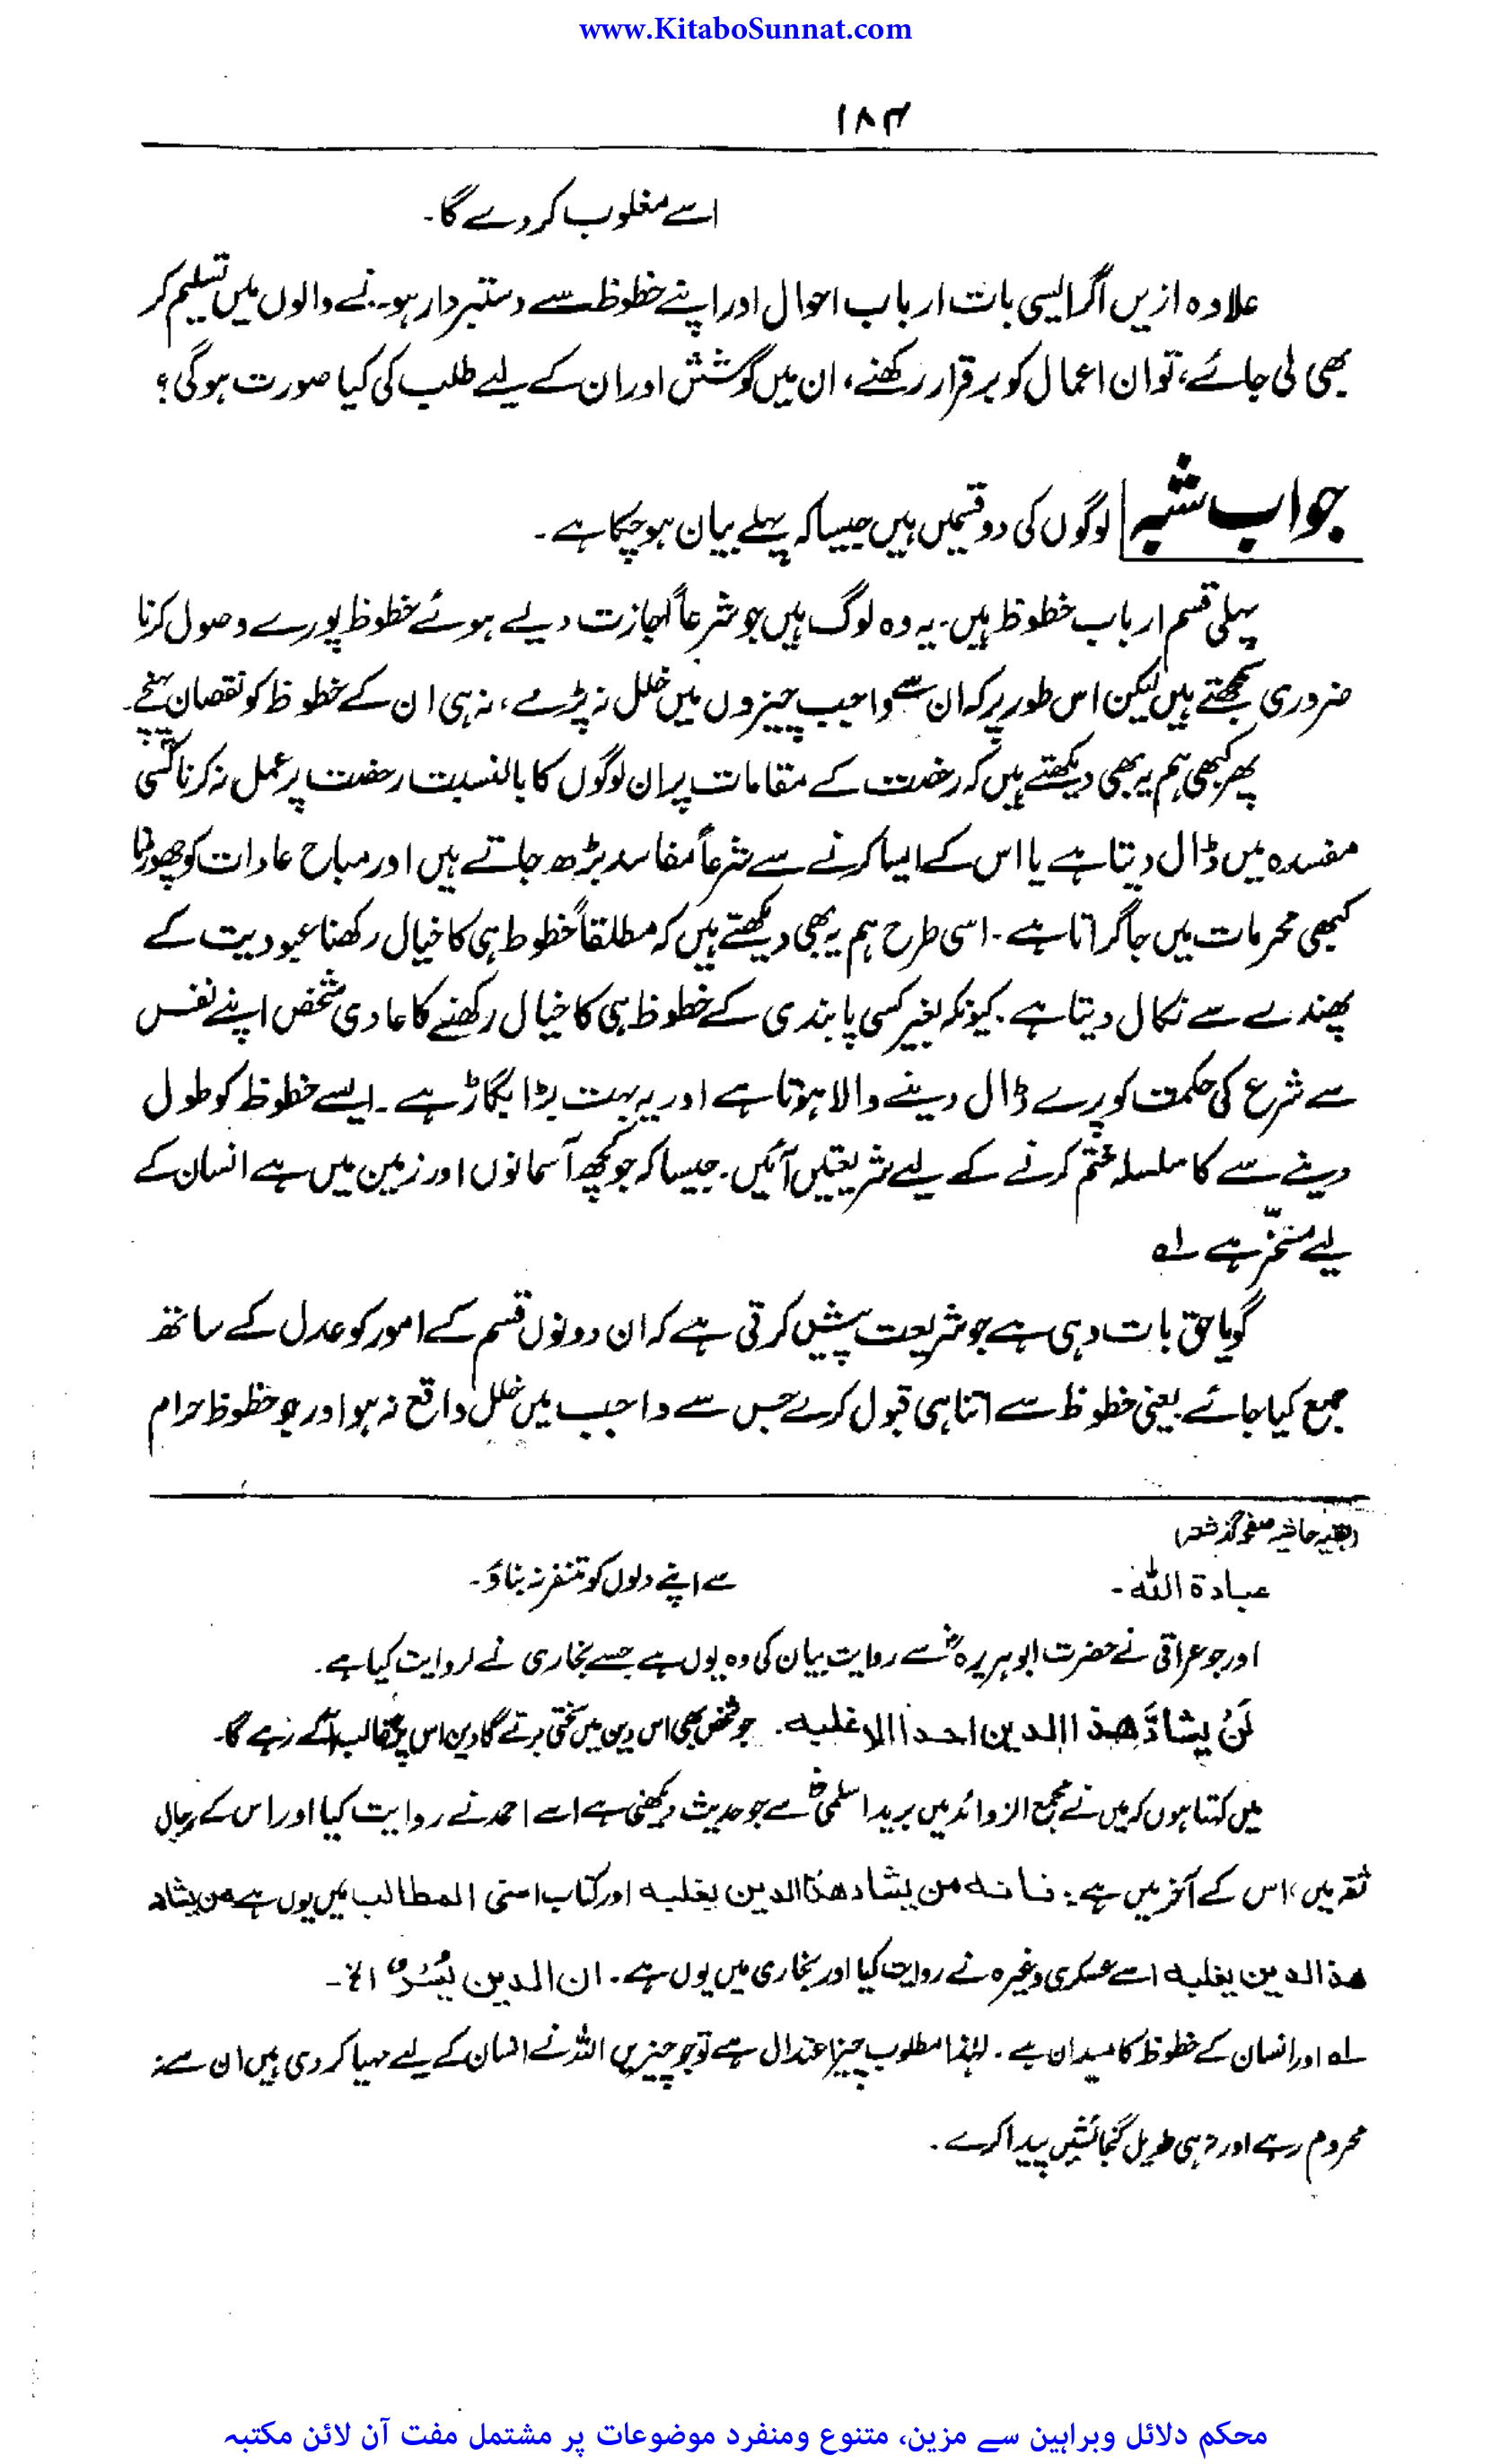 www.KitaboSunnat.com
۱۸۴
اسے مغلوب کر دے گا۔
علاوہ ازیں اگر ایسی بات ارباب احوال اور اپنے حظوظ سے دستبردار ہونے والوں میں تسلیم کر
بھی لی جائے، تو ان اعمال کو برقرار رکھنے، ان میں کوشش اور ان کے لیے طلب کی کیا صورت ہو گی؟
جواب شبہ لوگوں کی دو قسمیں ہیں جیسا کہ پہلے بیان ہو چکا ہے۔
پہلی قسم ارباب حظوظ ہیں۔ یہ وہ لوگ ہیں جو شرعاً اجازت دیے ہوئے حظوظ پورے وصول کرنا
ضروری سمجھتے ہیں لیکن اس طور پر کہ ان سے واجب چیزوں میں خلل نہ پڑے، نہ ہی ان کے حظوظ کو نقصان پہنچے۔
پھر کبھی ہم یہ بھی دیکھتے ہیں کہ رخصت کے مقامات پر ان لوگوں کا بالنسبت رخصت پر عمل نہ کرنا کسی
مفسدہ میں ڈال دیتا ہے یا اس کے ایسا کرنے سے شرعاً مفاسد بڑھ جاتے ہیں اور مباح عادات کو چھوڑنا
کبھی محرمات میں جا گراتا ہے۔ اسی طرح ہم یہ بھی دیکھتے ہیں کہ مطلقاً حظوظ ہی کا خیال رکھنا عبودیت کے
پھندے سے نکال دیتا ہے۔ کیونکہ بغیر کسی پابندی کے حظوظ ہی کا خیال رکھنے کا عادی شخص اپنے نفس
سے شرع کی حکمت کو پرے ڈال دینے والا ہوتا ہے اور یہ بہت بڑا بگاڑ ہے۔ ایسے حظوظ کو طول
دینے سے کا سلسلہ ختم کرنے کے لیے شریعتیں آئیں۔ جیسا کہ جو کچھ آسمانوں اور زمین میں ہے انسان کے
لیے مسخّر ہے ۱ہ
گویا حق بات وہی ہے جو شریعت پیش کرتی ہے کہ ان دونوں قسم کے امور کو عدل کے ساتھ
جمع کیا جائے یعنی حظوظ سے اتنا ہی قبول کرے جس سے واجب میں خلل واقع نہ ہو اور جو حظوظ حرام
(بقیہ حاشیہ صفحہ گذشتہ)
عبادة الله - سے اپنے دلوں کو متنفر نہ بناؤ۔
اور جو عراقی نے حضرت ابوہریرہؓ سے روایت بیان کی وہ یوں ہے جسے بخاری نے روایت کیا ہے۔
لَنُ يشادَّ هذا الدين احدا الا غلبه۔ جو شخص بھی اس دین میں سختی برتے گا دین اس پر غالب آ کے رہے گا۔
میں کہتا ہوں کہ میں نے مجمع الزوائد میں برید اسلمیؓ سے جو حدیث دیکھی ہے اسے احمد نے روایت کیا اور اس کے رجال
ثقہ ہیں، اس کے آخر میں ہے: فانه من يشاد هذا الدين يغلبه اور کتاب اسنی المطالب میں یوں ہے من يشاد
هذا الدين يغلبه اسے عسکری وغیرہ نے روایت کیا اور بخاری میں یوں ہے۔ ان الدين يُسُرٌ الخ۔
۱ہ اور انسان کے حظوظ کا میدان ہے۔ لہٰذا مطلوب چیز اعتدال ہے تو جو چیزیں اللہ نے انسان کے لیے مہیا کر دی ہیں ان سے نہ
محروم رہے اور نہ ہی طویل گنجائشیں پیدا کرے۔
محکم دلائل وبراہین سے مزین، متنوع ومنفرد موضوعات پر مشتمل مفت آن لائن مکتبہ